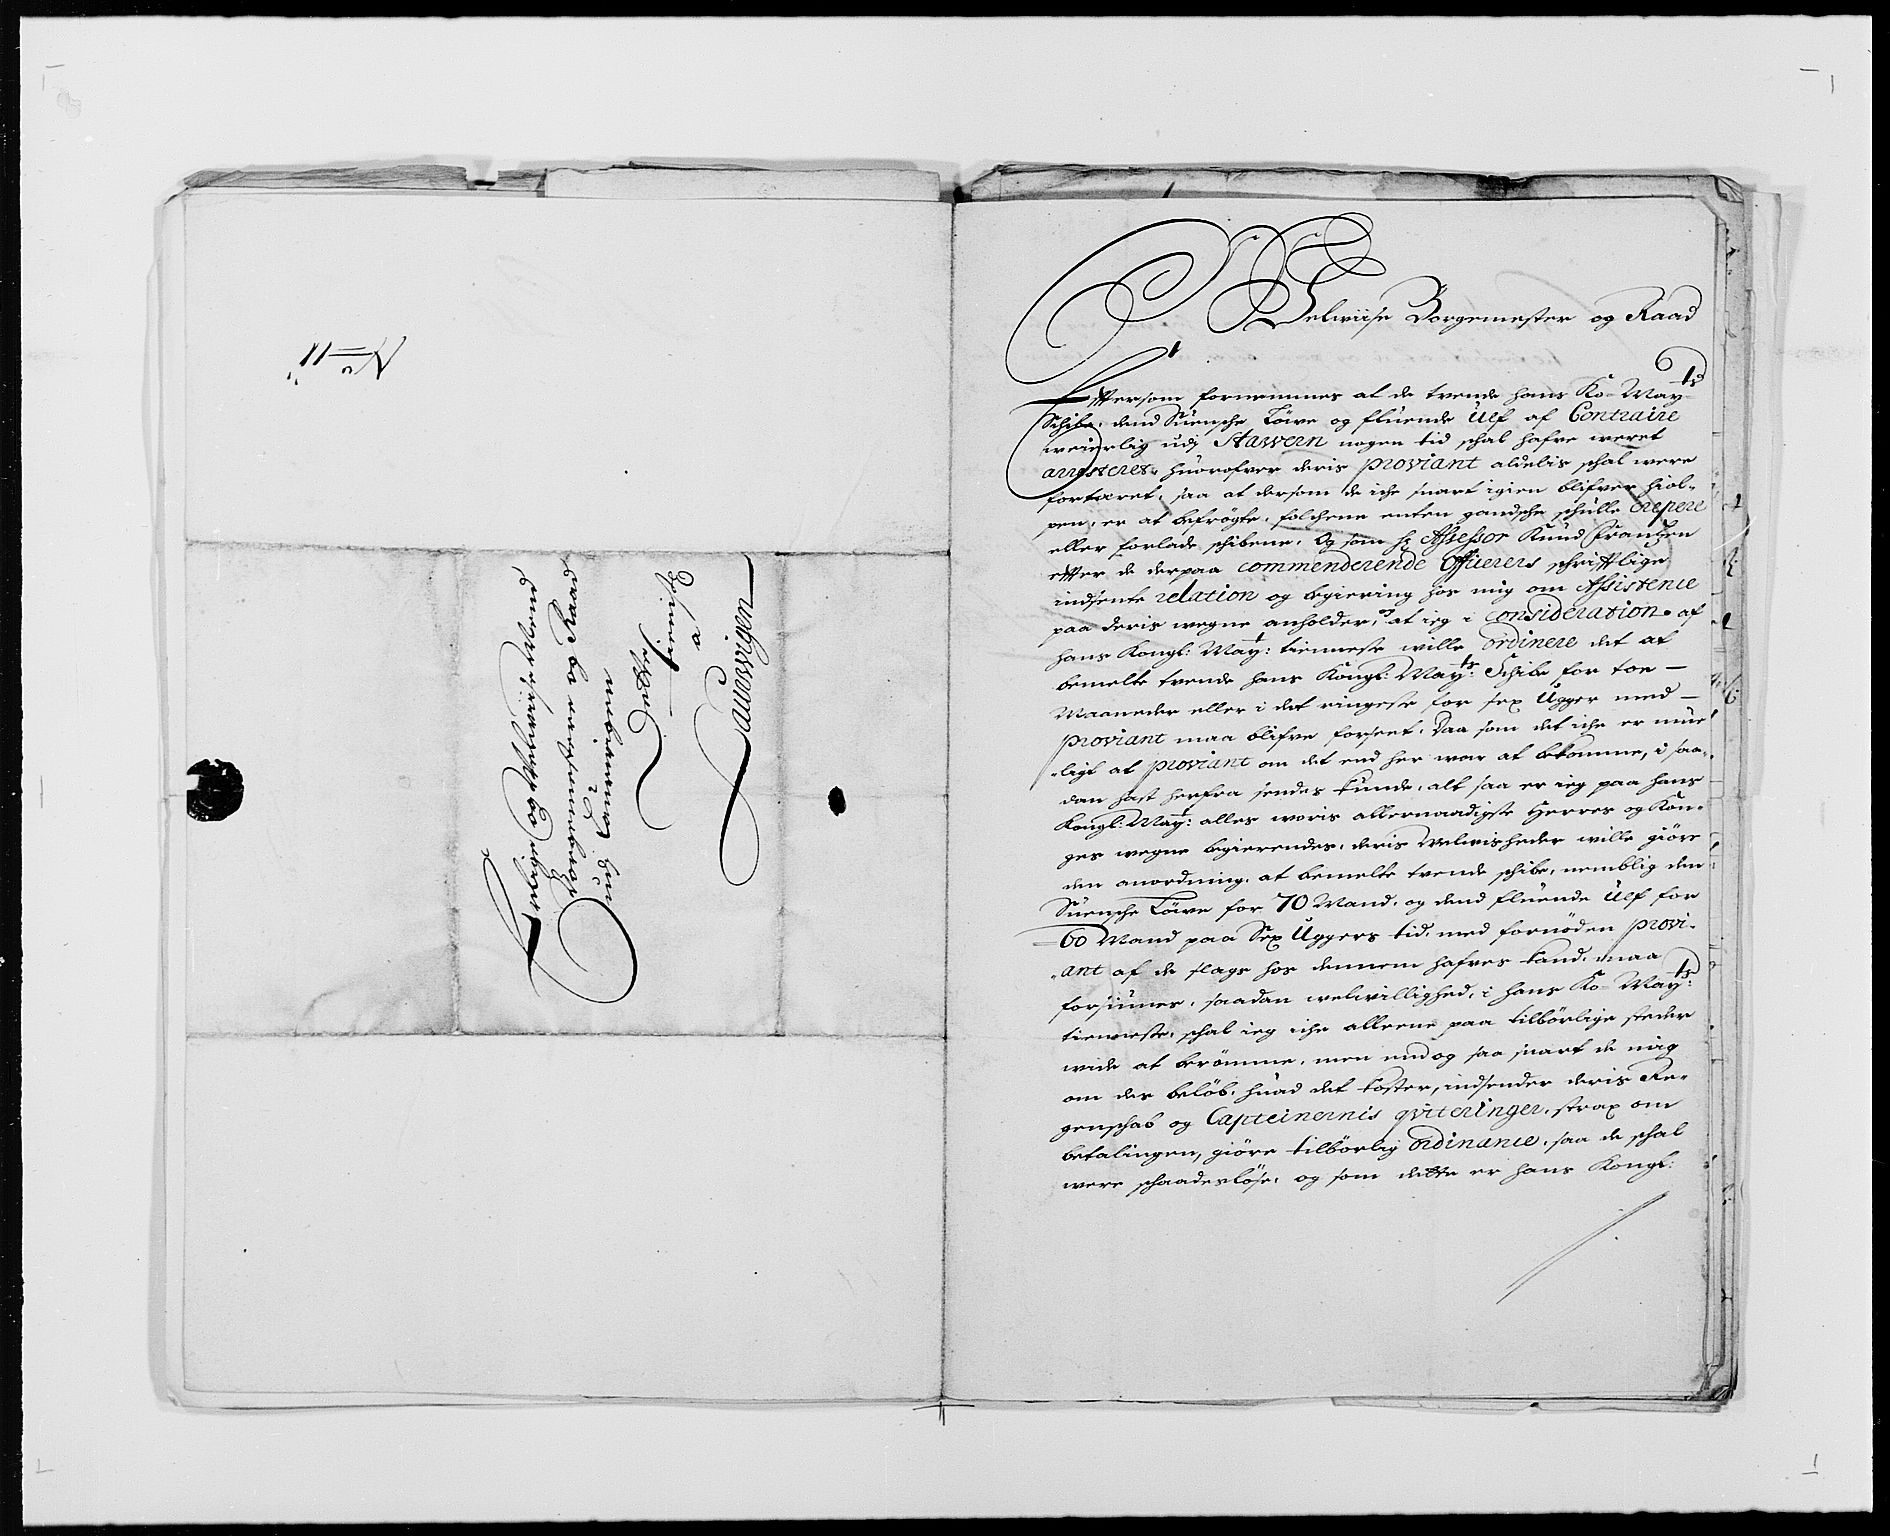 No 11.
Erlige og Welwiise Mend
Borgemestere og Raad
udj Laurvigen
Dette
tienstl
a
Lauerwigen
Welwiise Borgemester og Raad
Eftersom fornemmes at de tvende hans Ko: Mayts
Schibe, dend Suensche Löwe og flüende Ulf af Contraire
weierlig udj Stawern nogen tid schal hafve weret
arresteret, huorofver deris proviant aldelis schal were
fortæret, saa at dersom de iche snart igien blifver hiol-
pen, er at befrögte, folchene enten gandsche schulle crepere
eller forlade schibene, Og som hr Assessor Knud Frantzen
efter de derpaa commenderende Officerers schriftlige
indsente relation og begiering hos mig om Assistence
paa deris wegne anholder, at ieg i consideration af
hans Kongl: Mayt: tienneste wille ordinere det at
bemelte tvende hans Kongl: Mayts: Schibe for toe
Maaneder eller i det ringeste for sex Ugger med
proviant maa blifve forseet. Daa som det iche er mue-
ligt at proviant om det end her war at bekomme, i saa-
dan hast herfra sendes kunde, alt saa er ieg paa hans
Kongl: Mayt: alles woris allernaadigste Herres og Kon-
ges wegne begierendes, deris Welwisheder wille giöre
den anordning, at bemelte tvende schibe, nemblig den
Suensche Löwe for 70 Mand, og dend flüende Ulf for
60 Mand paa Sex Uggers tid, med fornöden provi-
ant af de slags hos dennem hafves kand, maa
forsiunes, saadan welwillighed, i hans Ko: Mayts:
tienneste, schal ieg iche alleene paa tilbörlige steder
wide at berömme, men end og saa snart de mig
om des belöb, huad det koster, indsender deris Re-
genschab og Capteinernis qviteringer, strax om
betalingen, giöre tilbörlig ordinance, saa de schal
were schaadeslöse, og som dette er hans Kongl: